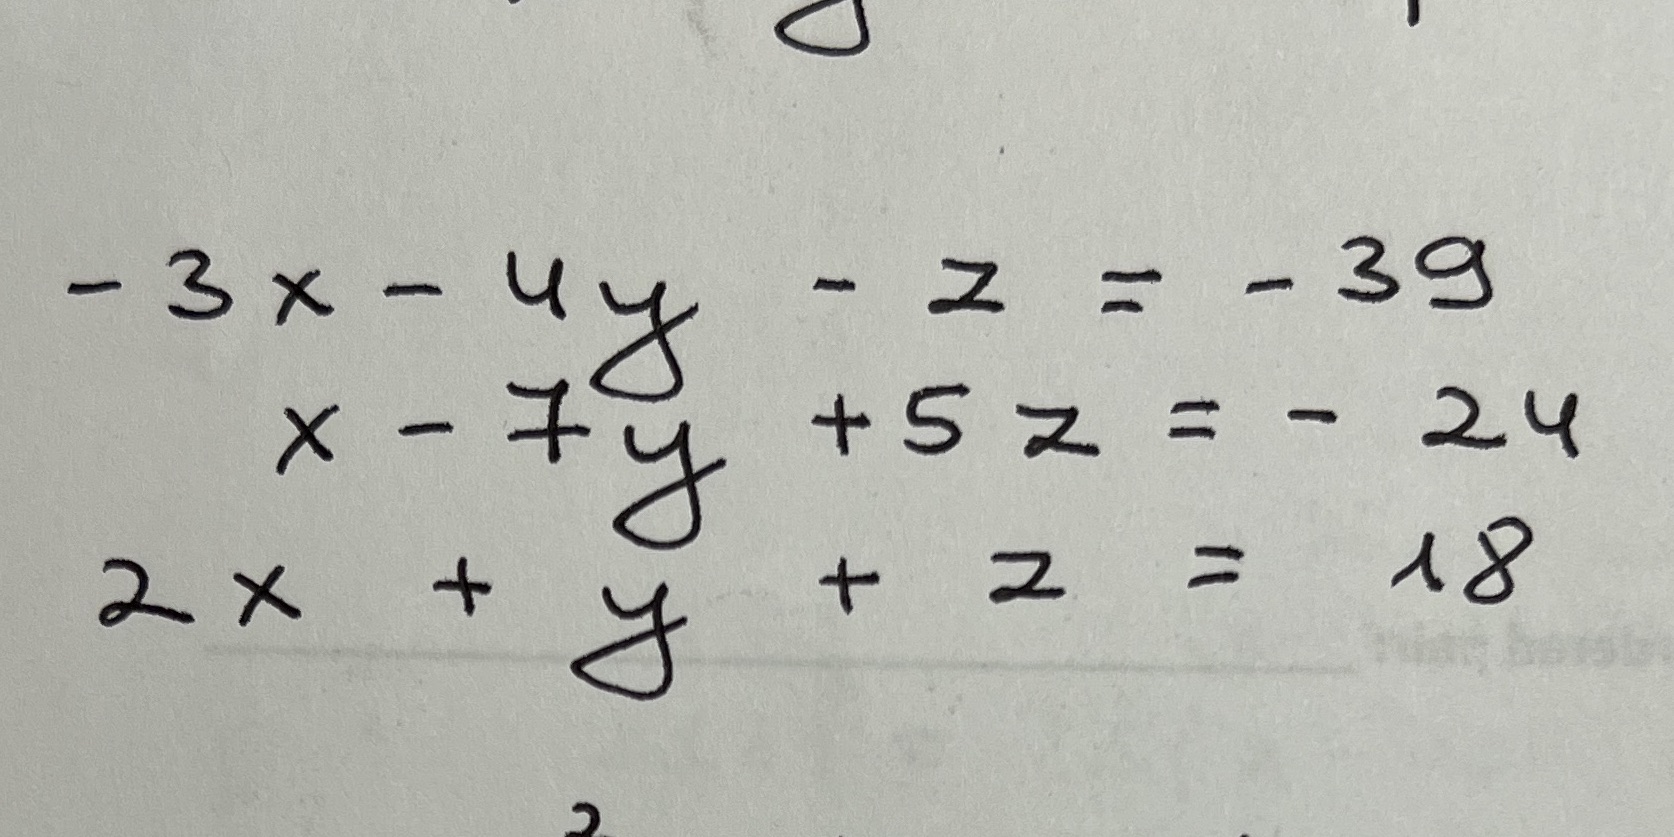 - 3x - 4y - z = - 39
x - 7y + 5z = - 24
2x + y + z = 18